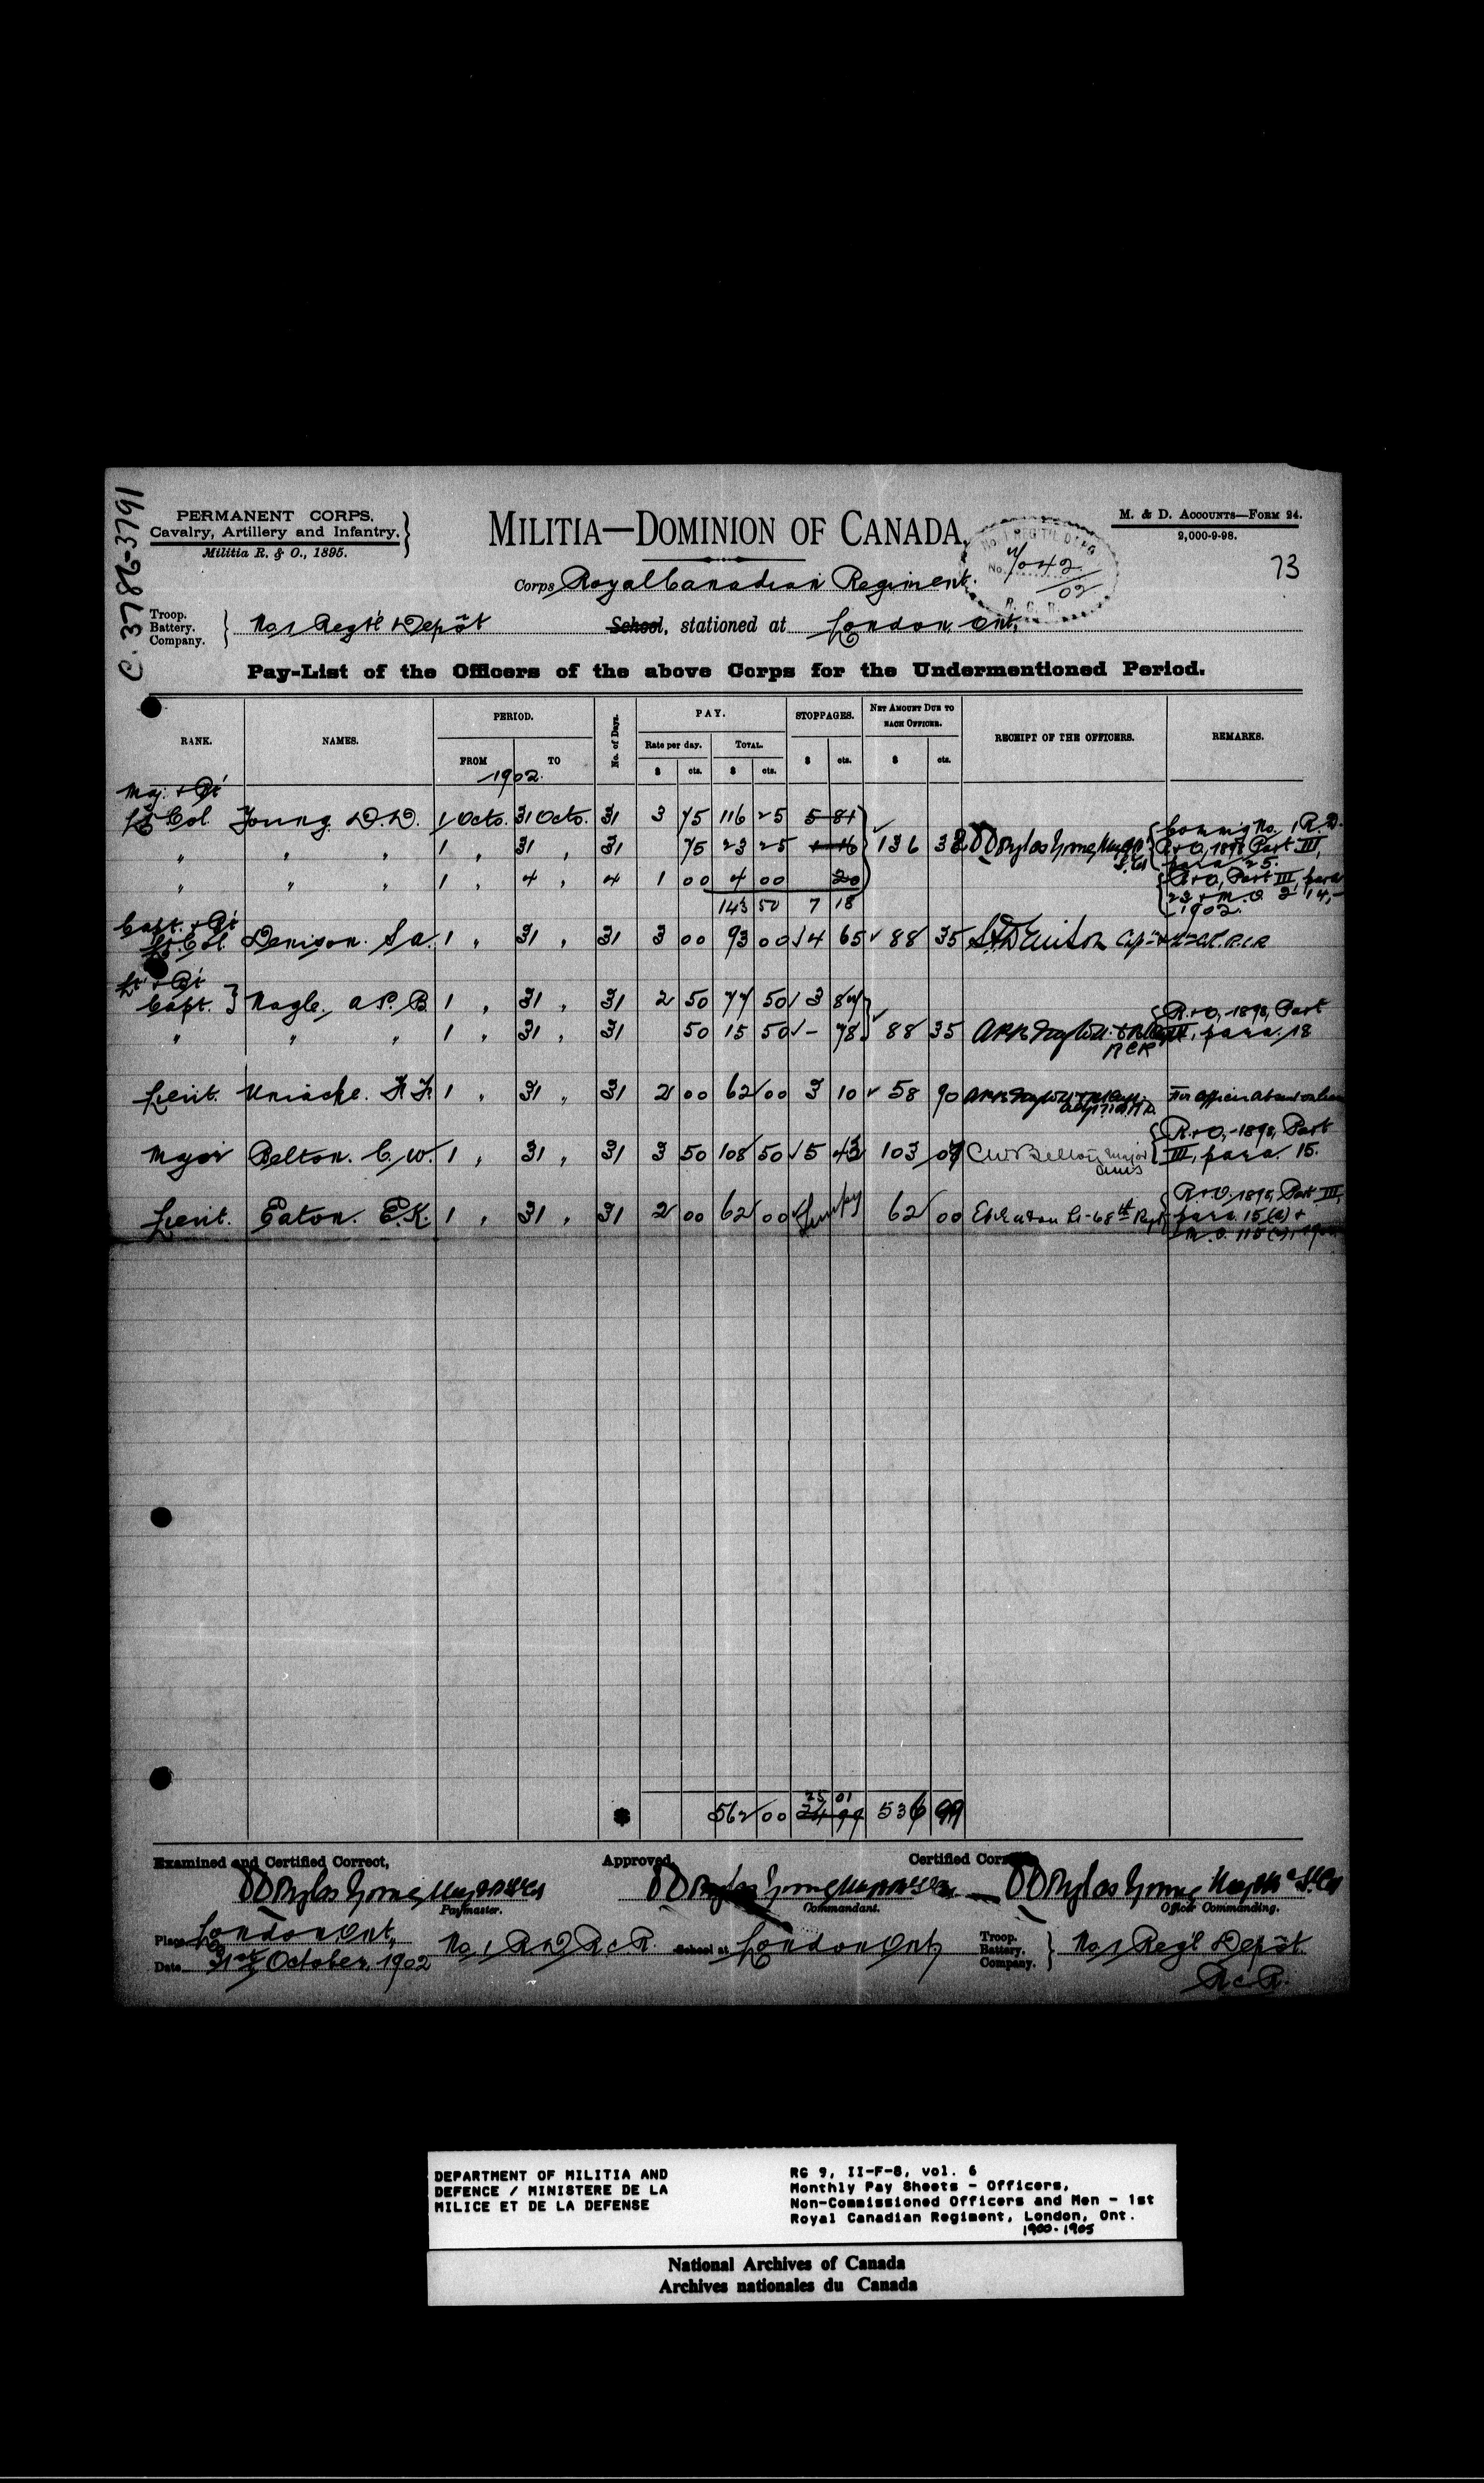 C. 3786-3791
PERMANENT CORPS.
Cavalry, Artillery and Infantry.
Militia R. & O., 1895.
MILITIA—DOMINION OF CANADA.
M. & D. Accounts—Form 24.
2,000-9-98.
73
No. 1 REGT'L DEPO
No. 7042
/02
R. C. R.
Corps Royal Canadian Regiment.
Troop.
Battery.
Company.
No 1 Regt'l Depôt School, stationed at London, Ont.
Pay-List of the Officers of the above Corps for the Undermentioned Period.
RANK. NAMES. PERIOD. No. of Days. PAY. STOPPAGES. Net Amount Due to each Officer. RECEIPT OF THE OFFICERS. REMARKS.
FROM TO Rate per day. TOTAL.
1902.
$ cts. $ cts. $ cts. $ cts.
Maj. & Bt
Lt Col. Young. D.D. 1 Octo. 31 Octo. 31 3 75 116 25 5 81
" " " 1 " 31 " 31 75 23 25 1 16 136 32 Comm'g No. 1 R.D. R+O, 1898, Part III, para 25.
" " " 1 " 4 " 4 1 00 4 00 20 R+O, Part III, para 22 + M.O. 214,- 1902.
143 50 7 18
Capt. & Bt
Lt. Col. Denison. S.A. 1 " 31 " 31 3 00 93 00 4 65 88 35 SADenison Capt
Lt & Bt
Capt. Nagle. A.P.B 1 " 31 " 31 2 50 77 50 3 87
" " " 1 " 31 " 31 50 15 50 - 78 88 35 RCR R+O,-1898, Part III, para. 18
Lieut. Uniacke. F.F. 1 " 31 " 31 2 00 62 00 3 10 58 90 For officer absent on leave
Major Belton. C.W. 1 " 31 " 31 3 50 108 50 5 43 103 07 CWBelton Major AMS R+O,-1898, Part III, para. 15.
Lieut. Eaton. E.K. 1 " 31 " 31 2 00 62 00 62 00 EKEaton Lt-68th Regt R+O 1898, Part III, para. 15(a) +
25 01
562 00 24 99 536 99
Examined and Certified Correct, Approved, Certified Correct
D Douglas Young D Douglas Young D Douglas Young
Paymaster. Commandant. Officer Commanding.
Place London Ont,
Date 31st October, 1902
No 1 R D R C R. School at London Ont,
Troop.
Battery.
Company.
No 1 Reg'l Depôt
R C R.
DEPARTMENT OF MILITIA AND
DEFENCE / MINISTERE DE LA
MILICE ET DE LA DEFENSE
RG 9, II-F-8, vol. 6
Monthly Pay Sheets - Officers,
Non-Commissioned Officers and Men - 1st
Royal Canadian Regiment, London, Ont.
1900-1905
National Archives of Canada
Archives nationales du Canada